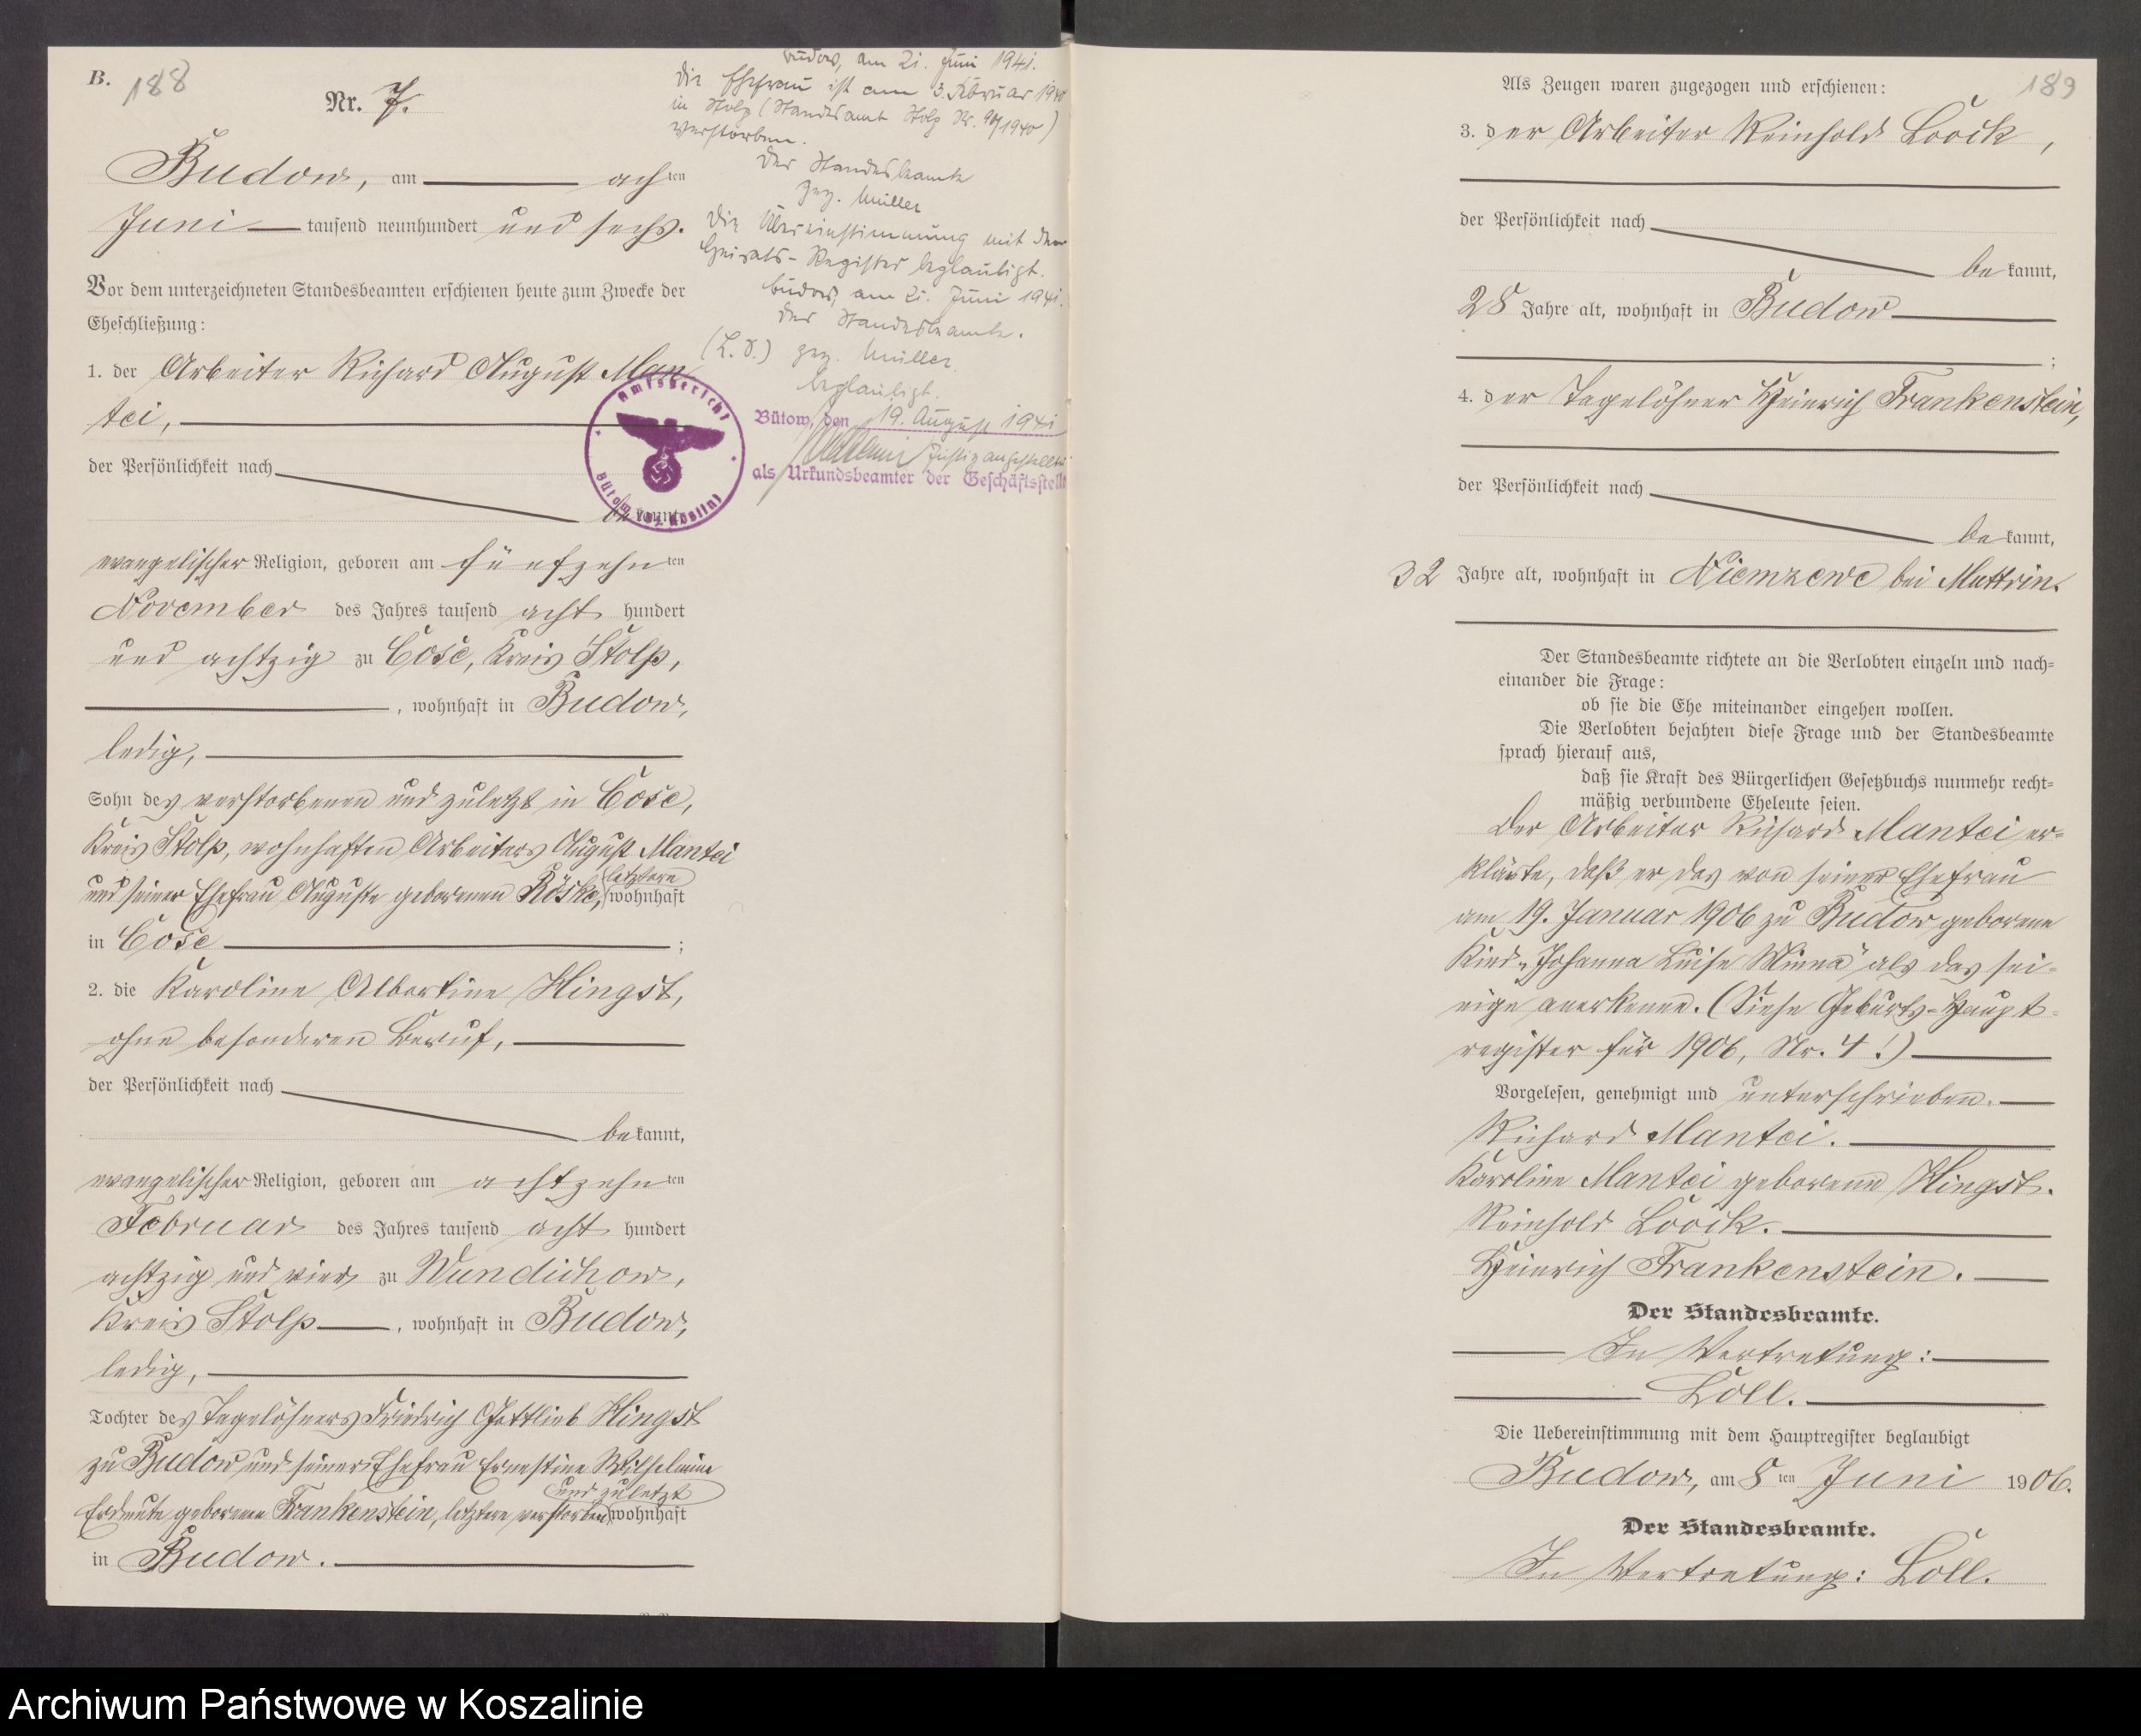 B.
188
Nr. 7.
Budow, am achten
Juni tausend neunhundert und sechs.
Vor dem unterzeichneten Standesbeamten erschienen heute zum Zwecke der
Eheschließung:
1. der Arbeiter Richard August Man
tei,
der Persönlichkeit nach
be kannt,
evangelischer Religion, geboren am fünfzehn ten
November des Jahres tausend acht hundert
und achtzig zu Cose, Kreis Stolp,
, wohnhaft in Budow,
ledig,
Sohn des verstorbenen und zuletzt in Cose,
Kreis Stolp, wohnhaften Arbeiters August Mantei
und seiner Ehefrau Auguste geborenen Röske, letztere wohnhaft
in Cose ;
2. die Karoline Albertine Hingst,
ohne besonderen Beruf,
der Persönlichkeit nach
be kannt,
evangelischer Religion, geboren am achtzehn ten
Februar des Jahres tausend acht hundert
achtzig und vier zu Wundichow,
Kreis Stolp , wohnhaft in Budow,
ledig,
Tochter des Tagelöhners Friedrich Gottlieb Hingst
zu Budow und seiner Ehefrau Ernestine Wilhelmine
Erdmute geborenen Frankenstein, letztere verstorben und zuletzt wohnhaft
in Budow.
Budow, am 21. Juni 1941.
Die Ehefrau ist am 3. Februar 1940
in Stolp (Standesamt Stolp Nr. 90/1940)
verstorben.
Der Standesbeamte
gez. Müller
Die Übereinstimmung mit dem
Heirats-Register beglaubigt.
Budow, am 21. Juni 1941.
Der Standesbeamte.
(L.S.) gez. Müller.
beglaubigt.
Bütow, den 19. August 1941
Justizangestellter
als Urkundsbeamter der Geschäftsstelle
Amtsgericht
Bütow Bez. Köslin
189
Als Zeugen waren zugezogen und erschienen:
3. der Arbeiter Reinhold Loock,
der Persönlichkeit nach
be kannt,
28 Jahre alt, wohnhaft in Budow
;
4. der Tagelöhner Heinrich Frankenstein,
der Persönlichkeit nach
be kannt,
32 Jahre alt, wohnhaft in Niemzewe bei Muttrin.
Der Standesbeamte richtete an die Verlobten einzeln und nach=
einander die Frage:
ob sie die Ehe miteinander eingehen wollen.
Die Verlobten bejahten diese Frage und der Standesbeamte
sprach hierauf aus,
daß sie kraft des Bürgerlichen Gesetzbuchs nunmehr recht=
mäßig verbundene Eheleute seien.
Der Arbeiter Richard Mantei er=
klärte, daß er das von seiner Ehefrau
am 19. Januar 1906 zu Budow geborene
Kind „Johanna Luise Minna" als das sei=
nige anerkenne. (Siehe Geburts-Haupt=
register für 1906, Nr. 4!)
Vorgelesen, genehmigt und unterschrieben.
Richard Mantei.
Karoline Mantei geborene Hingst.
Reinhold Loock.
Heinrich Frankenstein.
Der Standesbeamte.
In Vertretung:
Löll.
Die Uebereinstimmung mit dem Hauptregister beglaubigt
Budow, am 8 ten Juni 1906.
Der Standesbeamte.
In Vertretung: Löll.
Archiwum Państwowe w Koszalinie